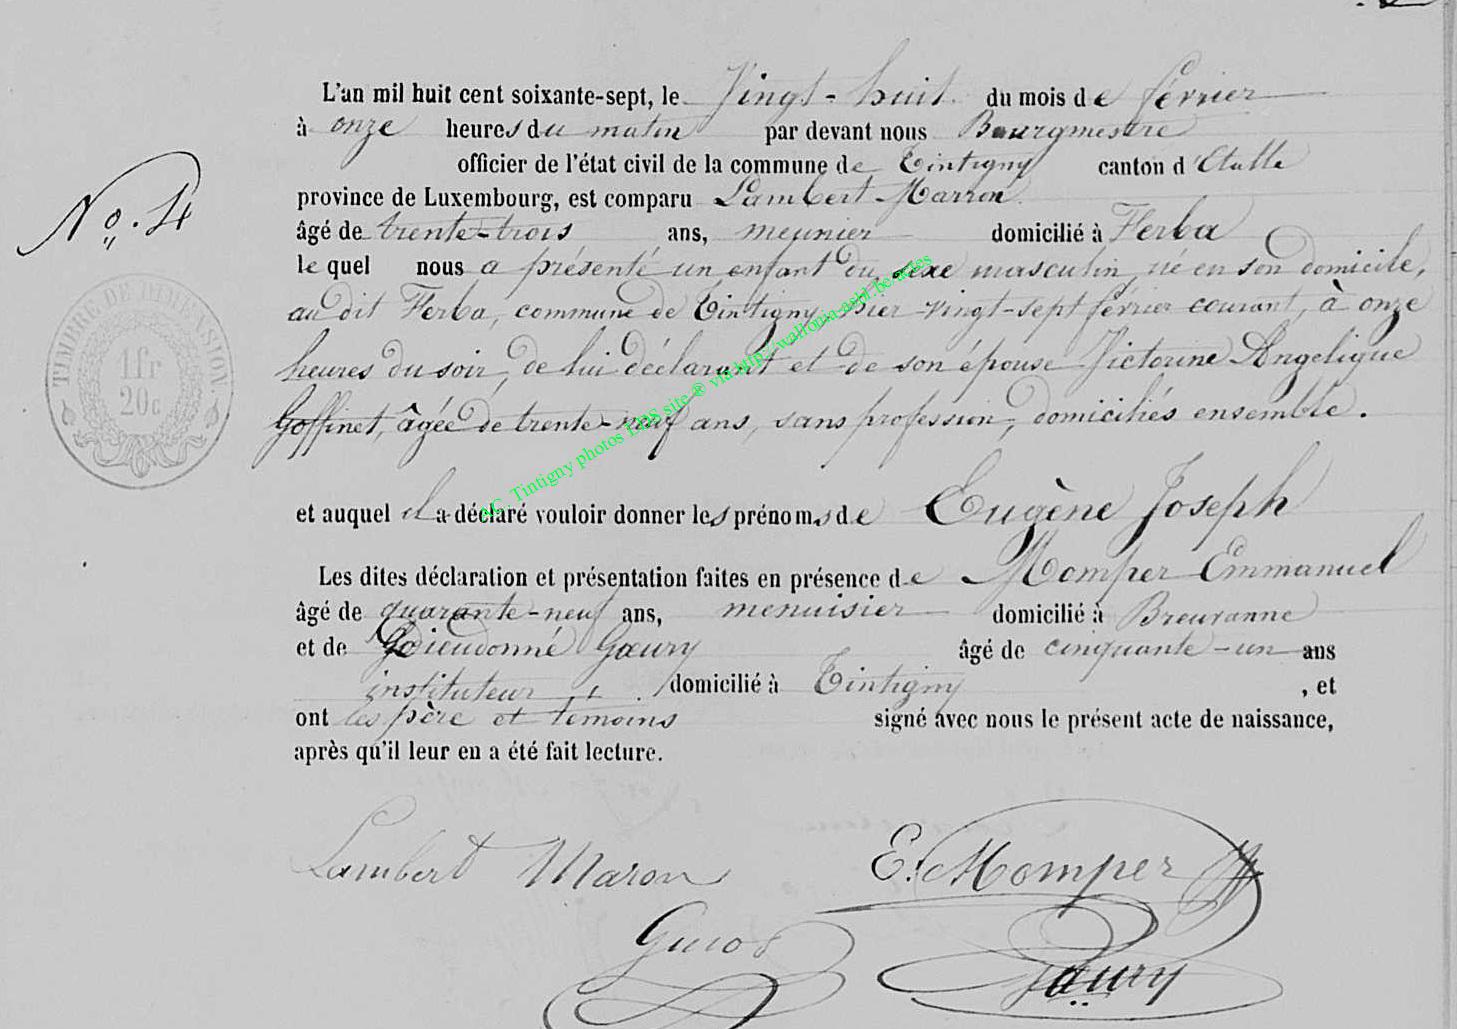 L'an mil huit cent soixante-sept, le Vingt-huit du mois de février
à onze heures du matin par devant nous Bourgmestre
officier de l'état civil de la commune de Tintigny canton d'Etalle
No. 4
province de Luxembourg, est comparu Lambert Marron
âgé de trente-trois ans, meunier domicilié à Ferba
lequel nous a présenté un enfant du sexe masculin, né en son domicile,
au dit Ferba, commune de Tintigny hier vingt-sept février courant, à onze
heures du soir, de lui déclarant et de son épouse Victorine Angelique
Goffinet, âgée de trente-neuf ans, sans profession, domiciliés ensemble.
TIMBRE DE DIMENSION
1fr
20c
AC. Tintigny photos EPS site ® via http://wallonia-asbl.be/actes
et auquel il a déclaré vouloir donner les prénoms de Eugène Joseph
Les dites déclaration et présentation faites en présence de Momper Emmanuel
âgé de quarante-neuf ans, menuisier domicilié à Breuvanne
et de Dieudonné Gœury âgé de cinquante-un ans
instituteur domicilié à Tintigny , et
ont les père et témoins signé avec nous le présent acte de naissance,
après qu'il leur en a été fait lecture.
Lambert Maron E. Momper
Gœury